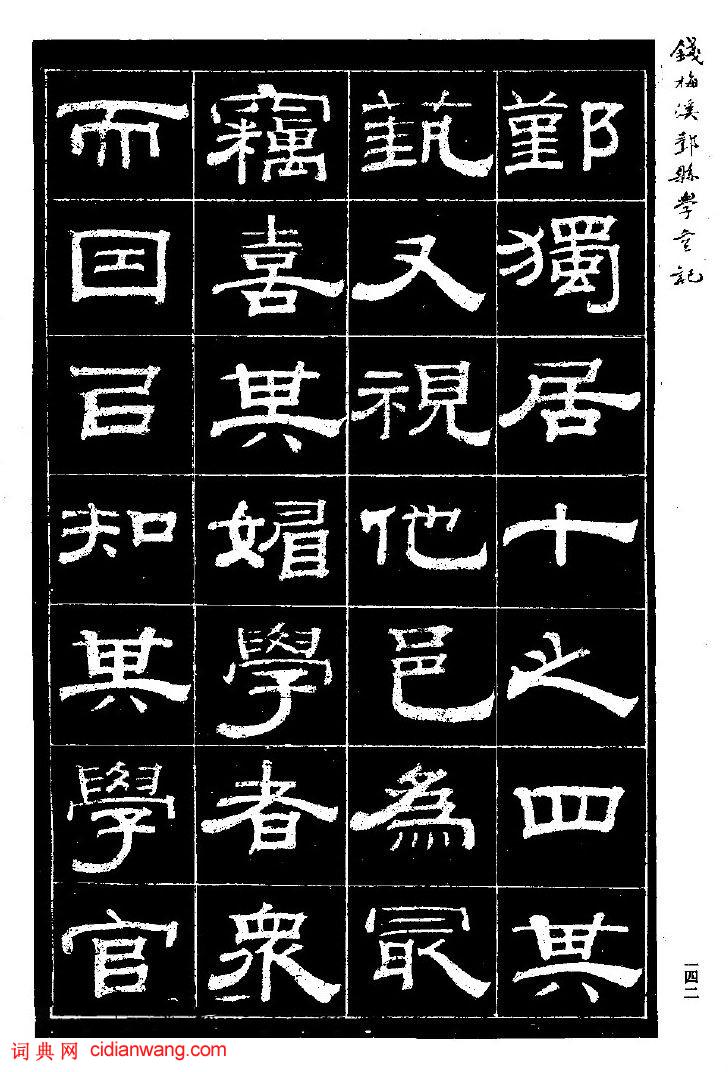 錢梅溪鄞縣學記
鄞獨居十之四其
蓺又視他邑為冣
竊喜其媚學者眾
而因㠯知其學官
一四二
词典网 cidianwang.com